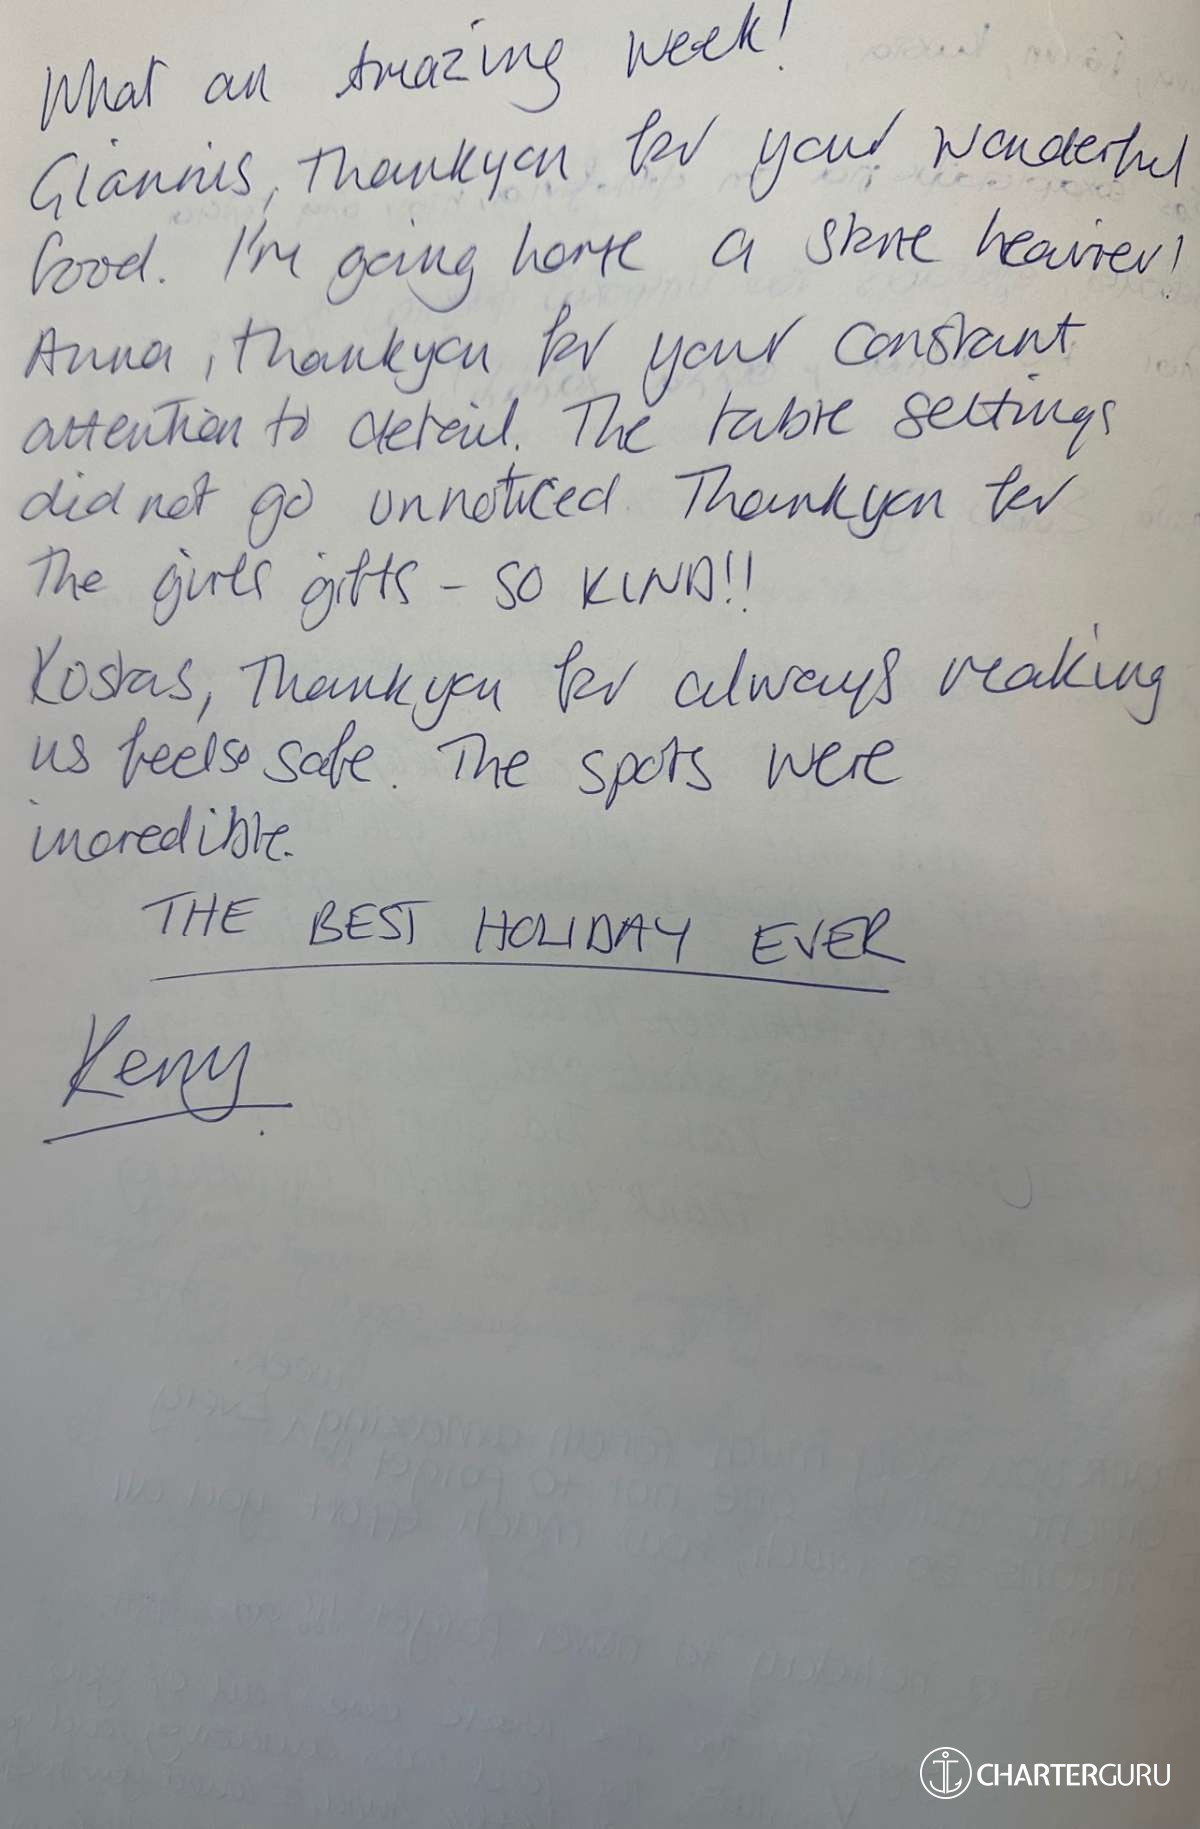 What an Amazing week!
Giannis, Thankyou for your wonderful
food. I'm going home a stone heavier!
Anna, thankyou for your constant
attention to detail. The table settings
did not go unnoticed. Thankyou for
the girls gifts - SO KIND!!
Kostas, Thankyou for always making
us feel so safe. The spots were
incredible.
THE BEST HOLIDAY EVER
Kerry
CHARTERGURU